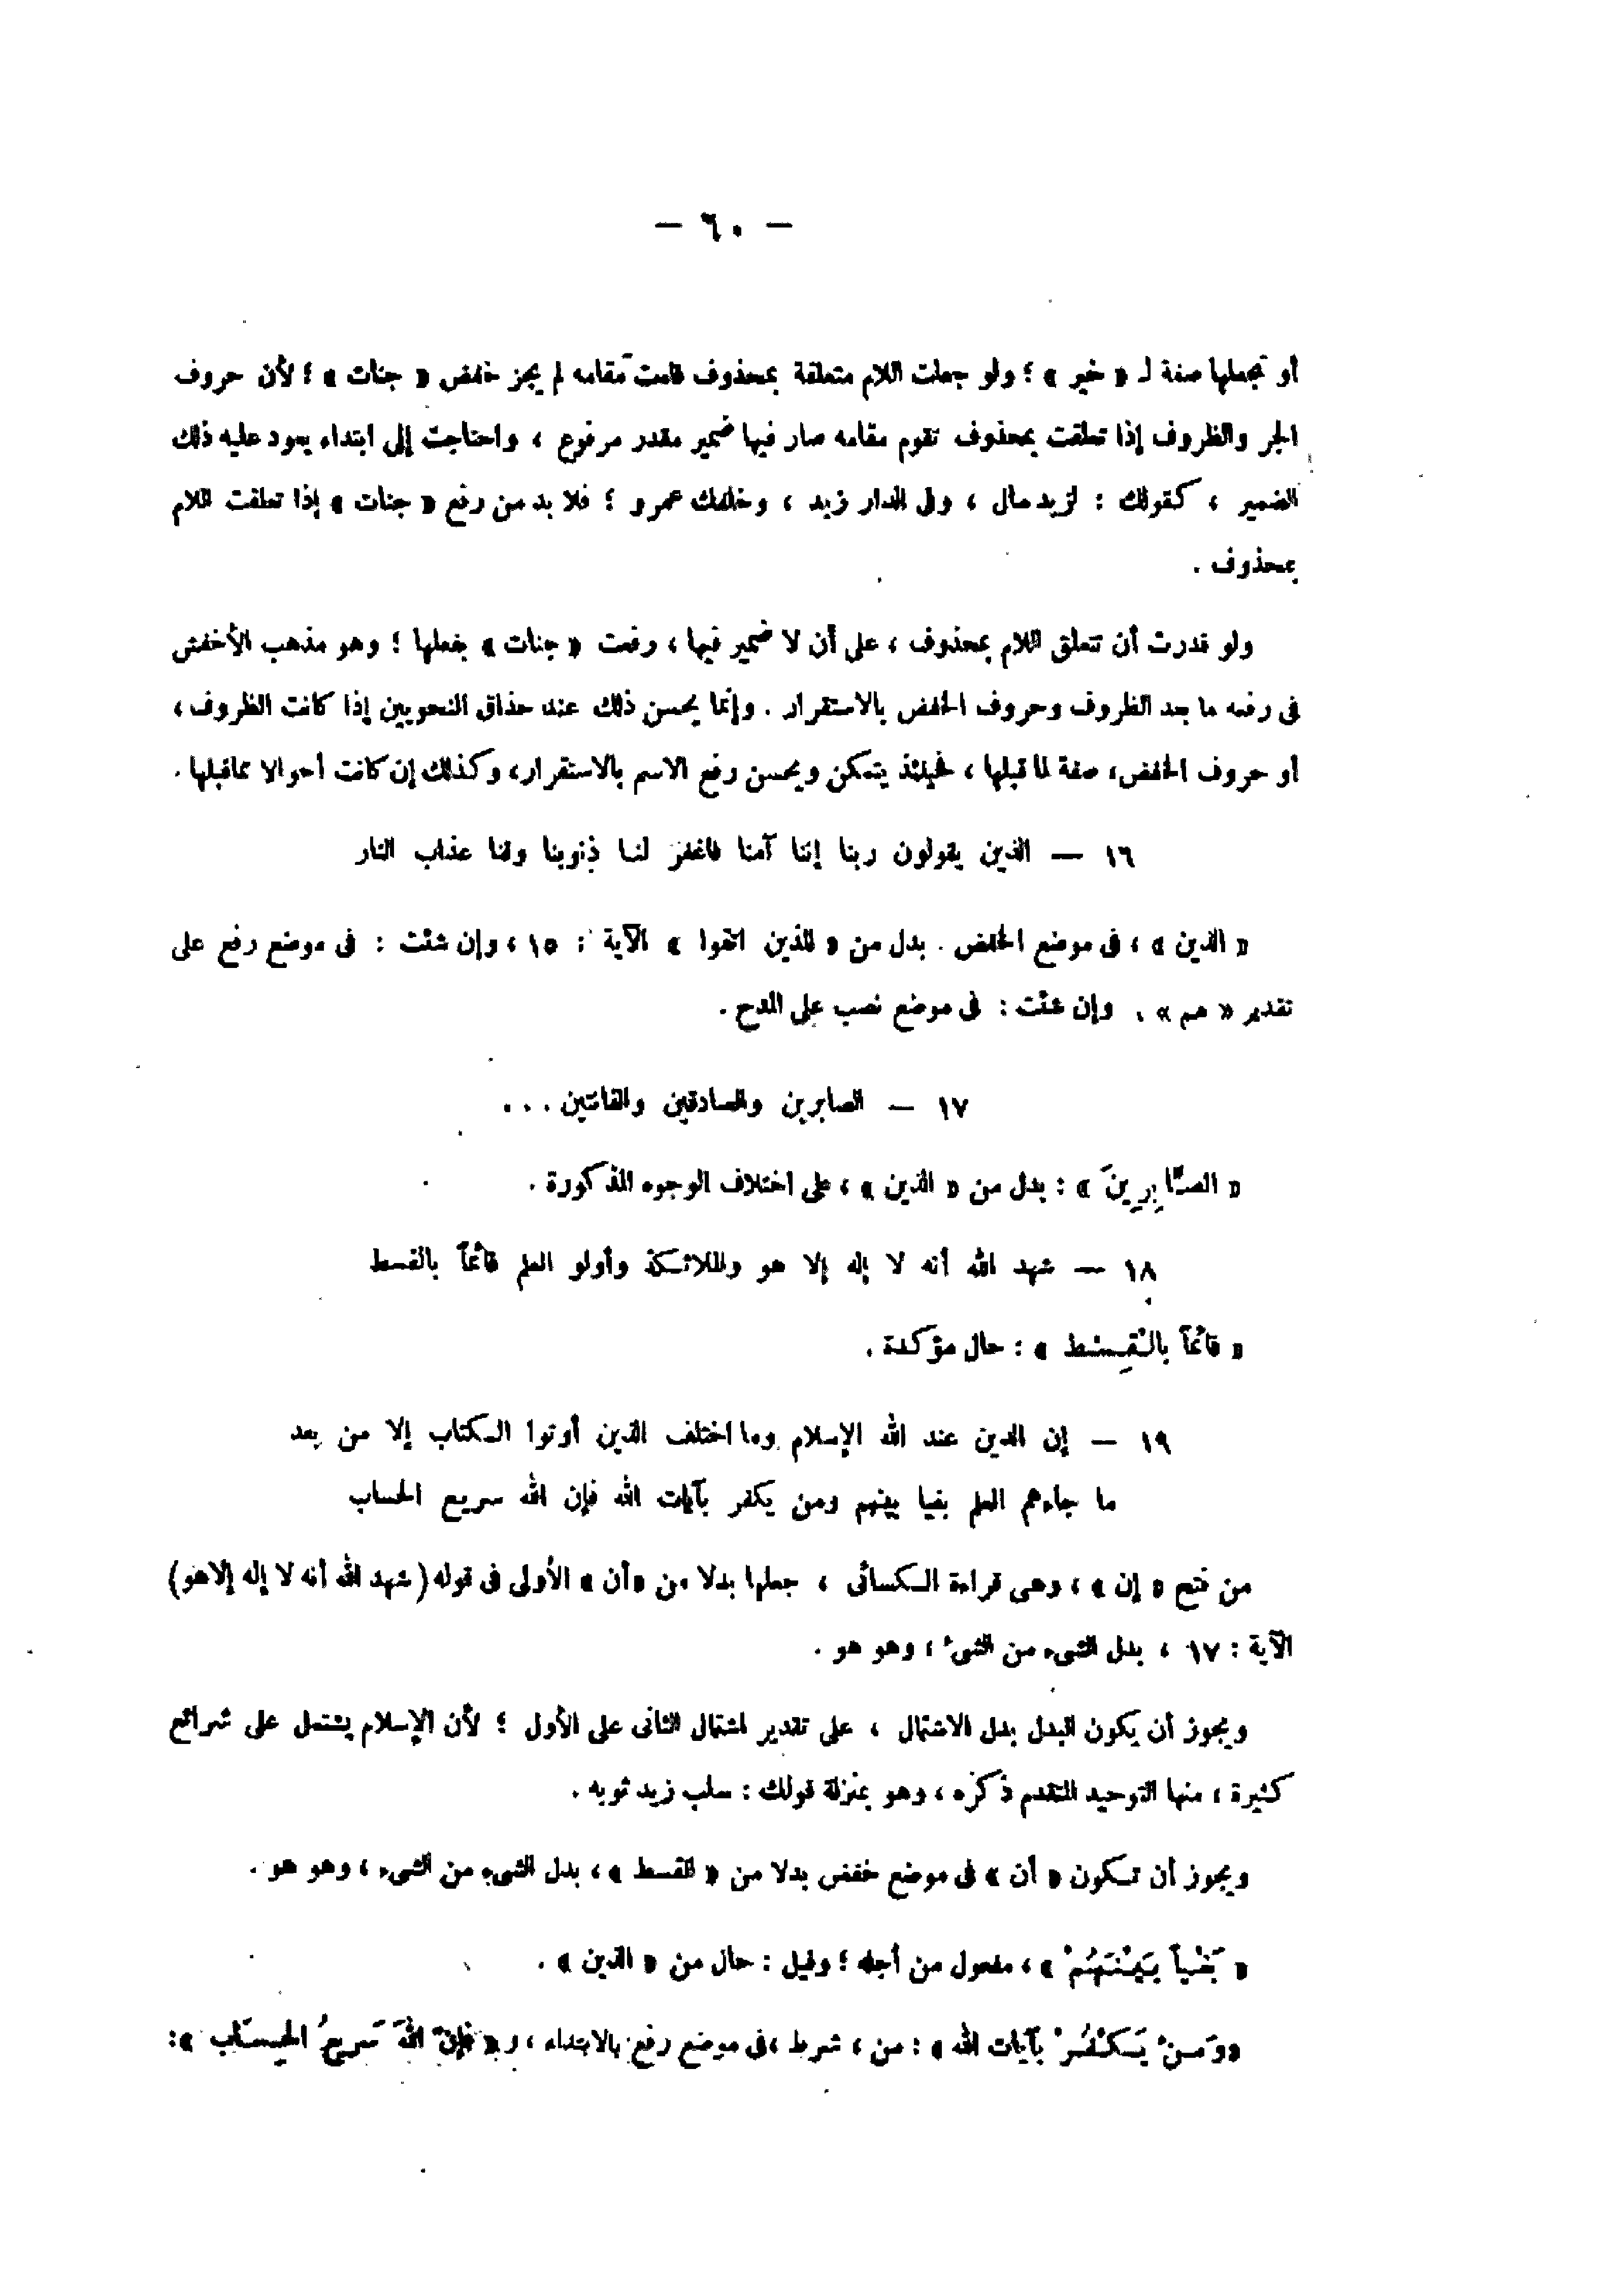 — ٦٠ —
أو تجعلها صفة لـ « خير » ؛ ولو جعلت اللام متعلقة بمحذوف قامت مقامه لم يجز خفض « جنات » ؛ لأن حروف
الجر والظروف إذا تعلقت بمحذوف تقوم مقامه صار فيها ضمير مقدر مرفوع ، واحتاجت إلى ابتداء يعود عليه ذلك
الضمير ، كقولك : لزيد مال ، وفى الدار زيد ، وخلفك عمرو ؛ فلا بد من رفع « جنات » إذا تعلقت اللام
بمحذوف .
ولو قدرت أن تتعلق اللام بمحذوف ، على أن لا ضمير فيها ، رفعت « جنات » بفعلها ؛ وهو مذهب الأخفش
فى رفعه ما بعد الظروف وحروف الخفض بالاستقرار . وإنما يحسن ذلك عند حذاق النحويين إذا كانت الظروف ،
أو حروف الخفض، صفة لما قبلها ، فحينئذ يتمكن ويحسن رفع الاسم بالاستقرار، وكذلك إن كانت أحوالا مما قبلها .
١٦ — الذين يقولون ربنا إننا آمنا فاغفر لنا ذنوبنا وقنا عذاب النار
« الذين » ، فى موضع الخفض . بدل من « للذين اتقوا » الآية : ١٥ ، وإن شئت : فى موضع رفع على
تقدير « هم » . وإن شئت : فى موضع نصب على المدح .
١٧ — الصابرين والصادقين والقانتين . . .
« الصَّابِرِينَ » : بدل من « الذين » ، على اختلاف الوجوه المذكورة .
١٨ — شهد الله أنه لا إله إلا هو والملائكة وأولو العلم قائماً بالقسط
« قائماً بالْقِسْط » : حال مؤكدة .
١٩ — إن الدين عند الله الإسلام وما اختلف الذين أوتوا الكتاب إلا من بعد
ما جاءهم العلم بغيا بينهم ومن يكفر بآيات الله فإن الله سريع الحساب
من فتح « إن » ، وهى قراءة الكسائى ، جعلها بدلا من « أن » الأولى فى قوله ( شهد الله أنه لا إله إلا هو )
الآية : ١٧ ، بدل الشىء من الشىء ، وهو هو .
ويجوز أن يكون البدل بدل الاشتمال ، على تقدير اشتمال الثانى على الأول ؛ لأن الإسلام يشتمل على شرائع
كثيرة ، منها التوحيد المتقدم ذكره ، وهو بمنزلة قولك : سلب زيد ثوبه .
ويجوز أن تكون « أن » فى موضع خفض بدلا من « القسط » ، بدل الشىء من الشىء ، وهو هو .
« بَغْياً بَيْنَهُمْ » ، مفعول من أجله ؛ وقيل : حال من « الذين » .
« وَمَنْ يَكْفُرْ بآيات الله » : من ، شرط ، فى موضع رفع بالابتداء ، و « فإنَّ اللهَ سَريعُ الحِسَاب » :